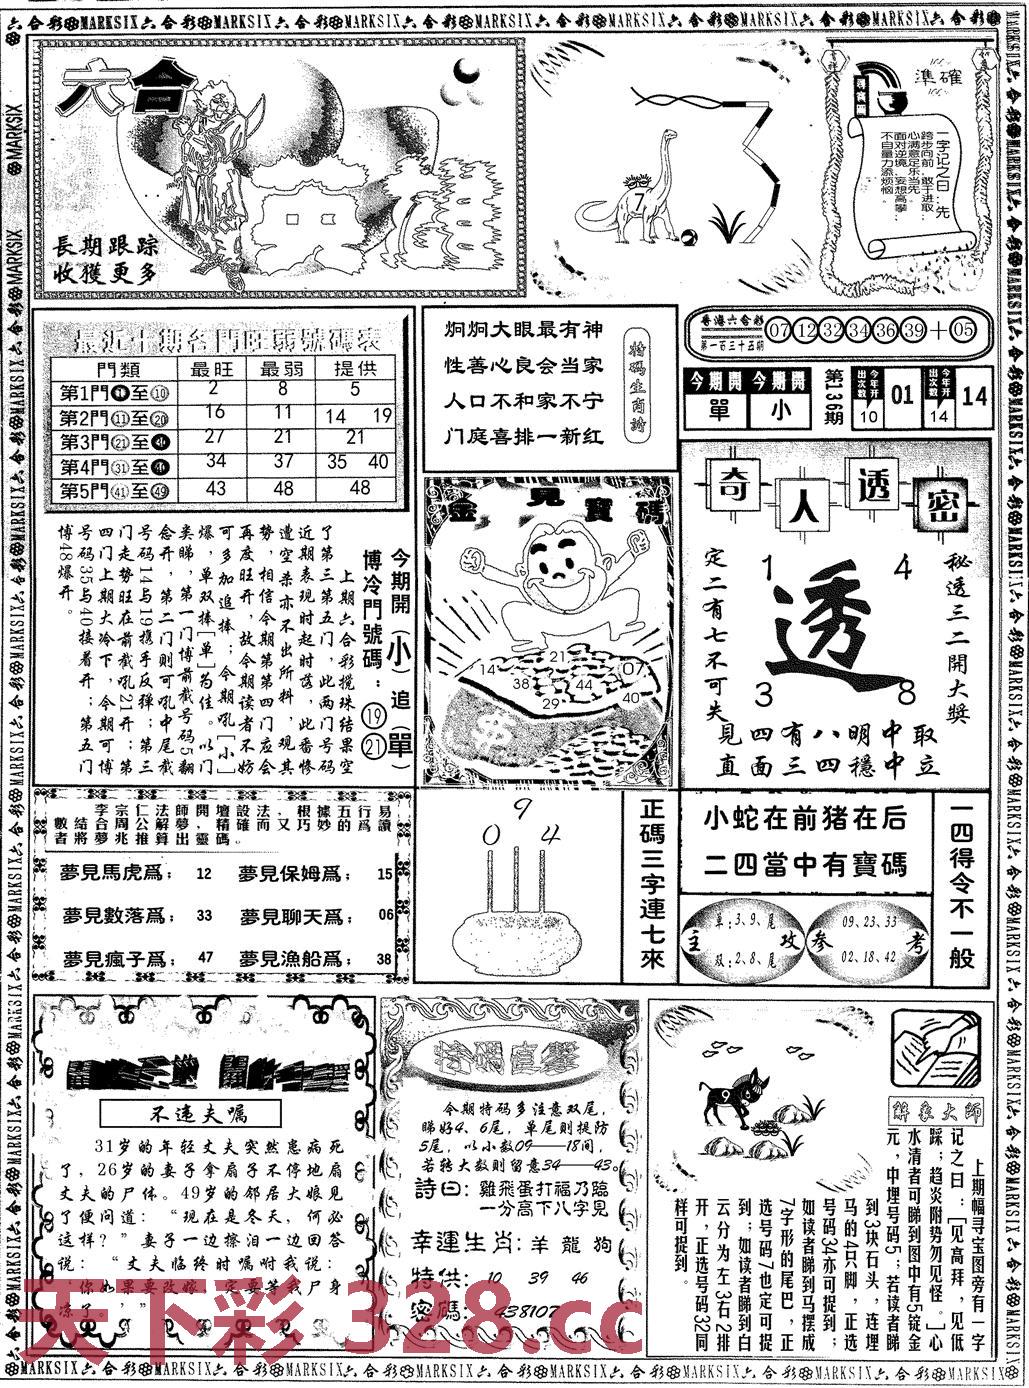 六合彩MARKSIX六合彩MARKSIX六合彩MARKSIX六合彩MARKSIX六合彩MARKSIX六合彩MARKSIX六合彩
六合
長期跟踪
收獲更多
7
準確
一字记之曰：先
跨步向前，敢于进取…
心满意足乐当先
面对逆境，妄想高攀…
不自量力添烦恼。
最近十期各門旺弱號碼表
門類 最旺 最弱 提供
第1門①至⑩ 2 8 5
第2門⑪至⑳ 16 11 14 19
第3門㉑至㉚ 27 21 21
第4門㉛至㊵ 34 37 35 40
第5門㊶至㊾ 43 48 48
今期開(小)追(單)
博冷門號碼：⑲㉑
上期六合彩搅珠结果空
了第三第五门，此两门号码
近期表现时起时落，此番惨
遭空杀亦不出所料，观其
势，相信今期第第四门应会
再度旺开，故今期读者不妨
可多加追捧；今期吼[小]
爆，单双捧[单]为佳。以门
类睇，第一门博前截号码5翻
念开，第二门则可吼中尾截
号码14与19携手反弹；第三
门走势旺在前截吼21开；第
四门上期大冷下，今期可博
号码35与40接着开；第五门
博48爆开。
炯炯大眼最有神
性善心良会当家
人口不和家不宁
门庭喜排一新红
特碼生肖詩
香港六合彩
第一百三十五期
07 12 32 34 36 39 + 05
今期開 單
今期開 小
第136期
今年开出次数 10
01
今年开出次数 14
14
金見寶碼
14 21 07
38 44
29 40
奇人透密
秘透三二開大獎
定二有七不可失
1 4
透
3 8
見四有八明中取
直面三四穩中立
李宗仁法師開壇設法，根據五行易
數結合周公解夢，精確而又巧妙的爲讀
者將夢兆推算出靈碼。
夢見馬虎爲； 12 夢見保姆爲； 15
夢見數落爲； 33 夢見聊天爲； 06
夢見瘋子爲； 47 夢見漁船爲； 38
9
0 4
正碼三字連七來
小蛇在前猪在后
二四當中有寶碼
主攻
单：3、9、尾
双：2、8、尾
参考
09、23、33
02、18、42
一四得令不一般
不违夫嘱
31岁的年轻丈夫突然患病死
了，26岁的妻子拿扇子不停地扇
丈夫的尸体。49岁的邻居大娘见
了便问道：“现在是冬天，何必
这样？”妻子一边擦泪一边回答
说：“丈夫临终时嘱咐我说：
‘你如果要改嫁，一定要等我尸身
凉了。’”
特碼直擊
今期特码多注意双尾，
睇好4、6尾，单尾则提防
5尾，以小数09——18间，
若转大数则留意34——43。
詩曰：雞飛蛋打福乃臨
一分高下八字見
幸運生肖：羊 龍 狗
特供： 10 39 46
密碼： 438107
9
解象大師
上期幅寻宝图旁有一字
记之曰：[见高拜，见低
踩；趋炎附势勿见怪。]心
水清者可睇到图中有5锭金
元，中埋号码5；若读者睇
到3块石头，连埋
马的4只脚，正选
号码34亦可捉到；
如读者睇到马摆成
7字形的尾巴，正
选号码7也定可捉
到；如读者睇到白
云分为左3右2排
开，正选号码32同
样可捉到。
天下彩 328.cc
MARKSIX六合彩MARKSIX六合彩MARKSIX六合彩MARKSIX六合彩MARKSIX六合彩MARKSIX六合彩MARKSIX